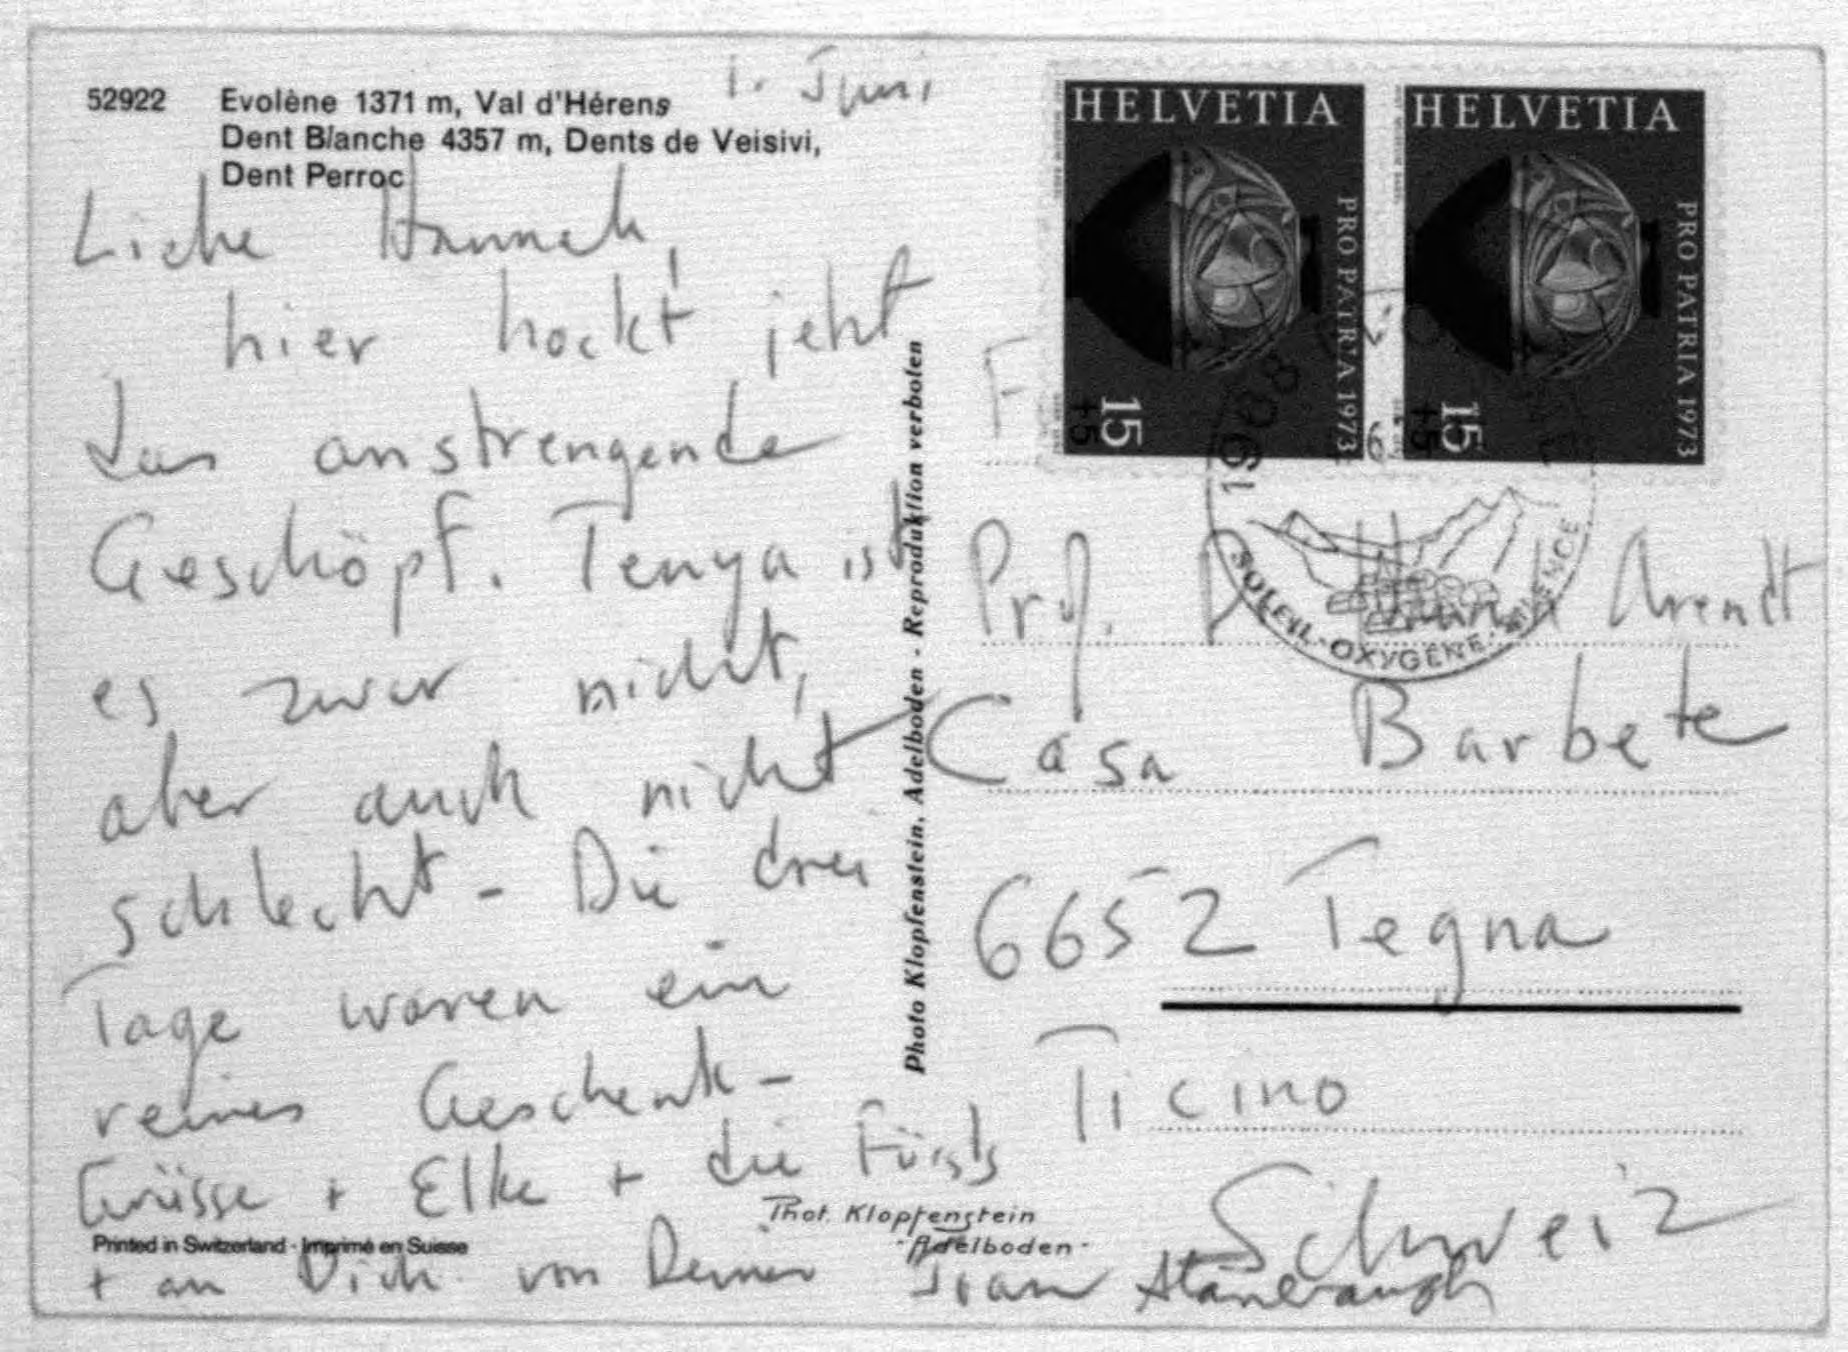 1. Juni
52922 Evolène 1371 m, Val d'Hérens
Dent Blanche 4357 m, Dents de Veisivi,
Dent Perroc
Liebe Hannah,
hier hockt jetzt
das anstrengende
Geschöpf. Tenya ist
es zwar nicht,
aber auch nicht
schlecht - Die drei
Tage waren ein
reines Geschenk -
Grüsse + Elke + die Fürsts
Printed in Switzerland · Imprimé en Suisse
+ an Dich von Deiner Joan Stambaugh
Phot. Klopfenstein
- Adelboden -
Photo Klopfenstein, Adelboden - Reproduktion verboten
HELVETIA
PRO PATRIA 1973
15
+5
HELVETIA
PRO PATRIA 1973
15
+5
1968
SOLEIL - OXYGENE -
F
Prof. D Hannah Arendt
Casa Barbete
6652 Tegna
Ticino
Schweiz